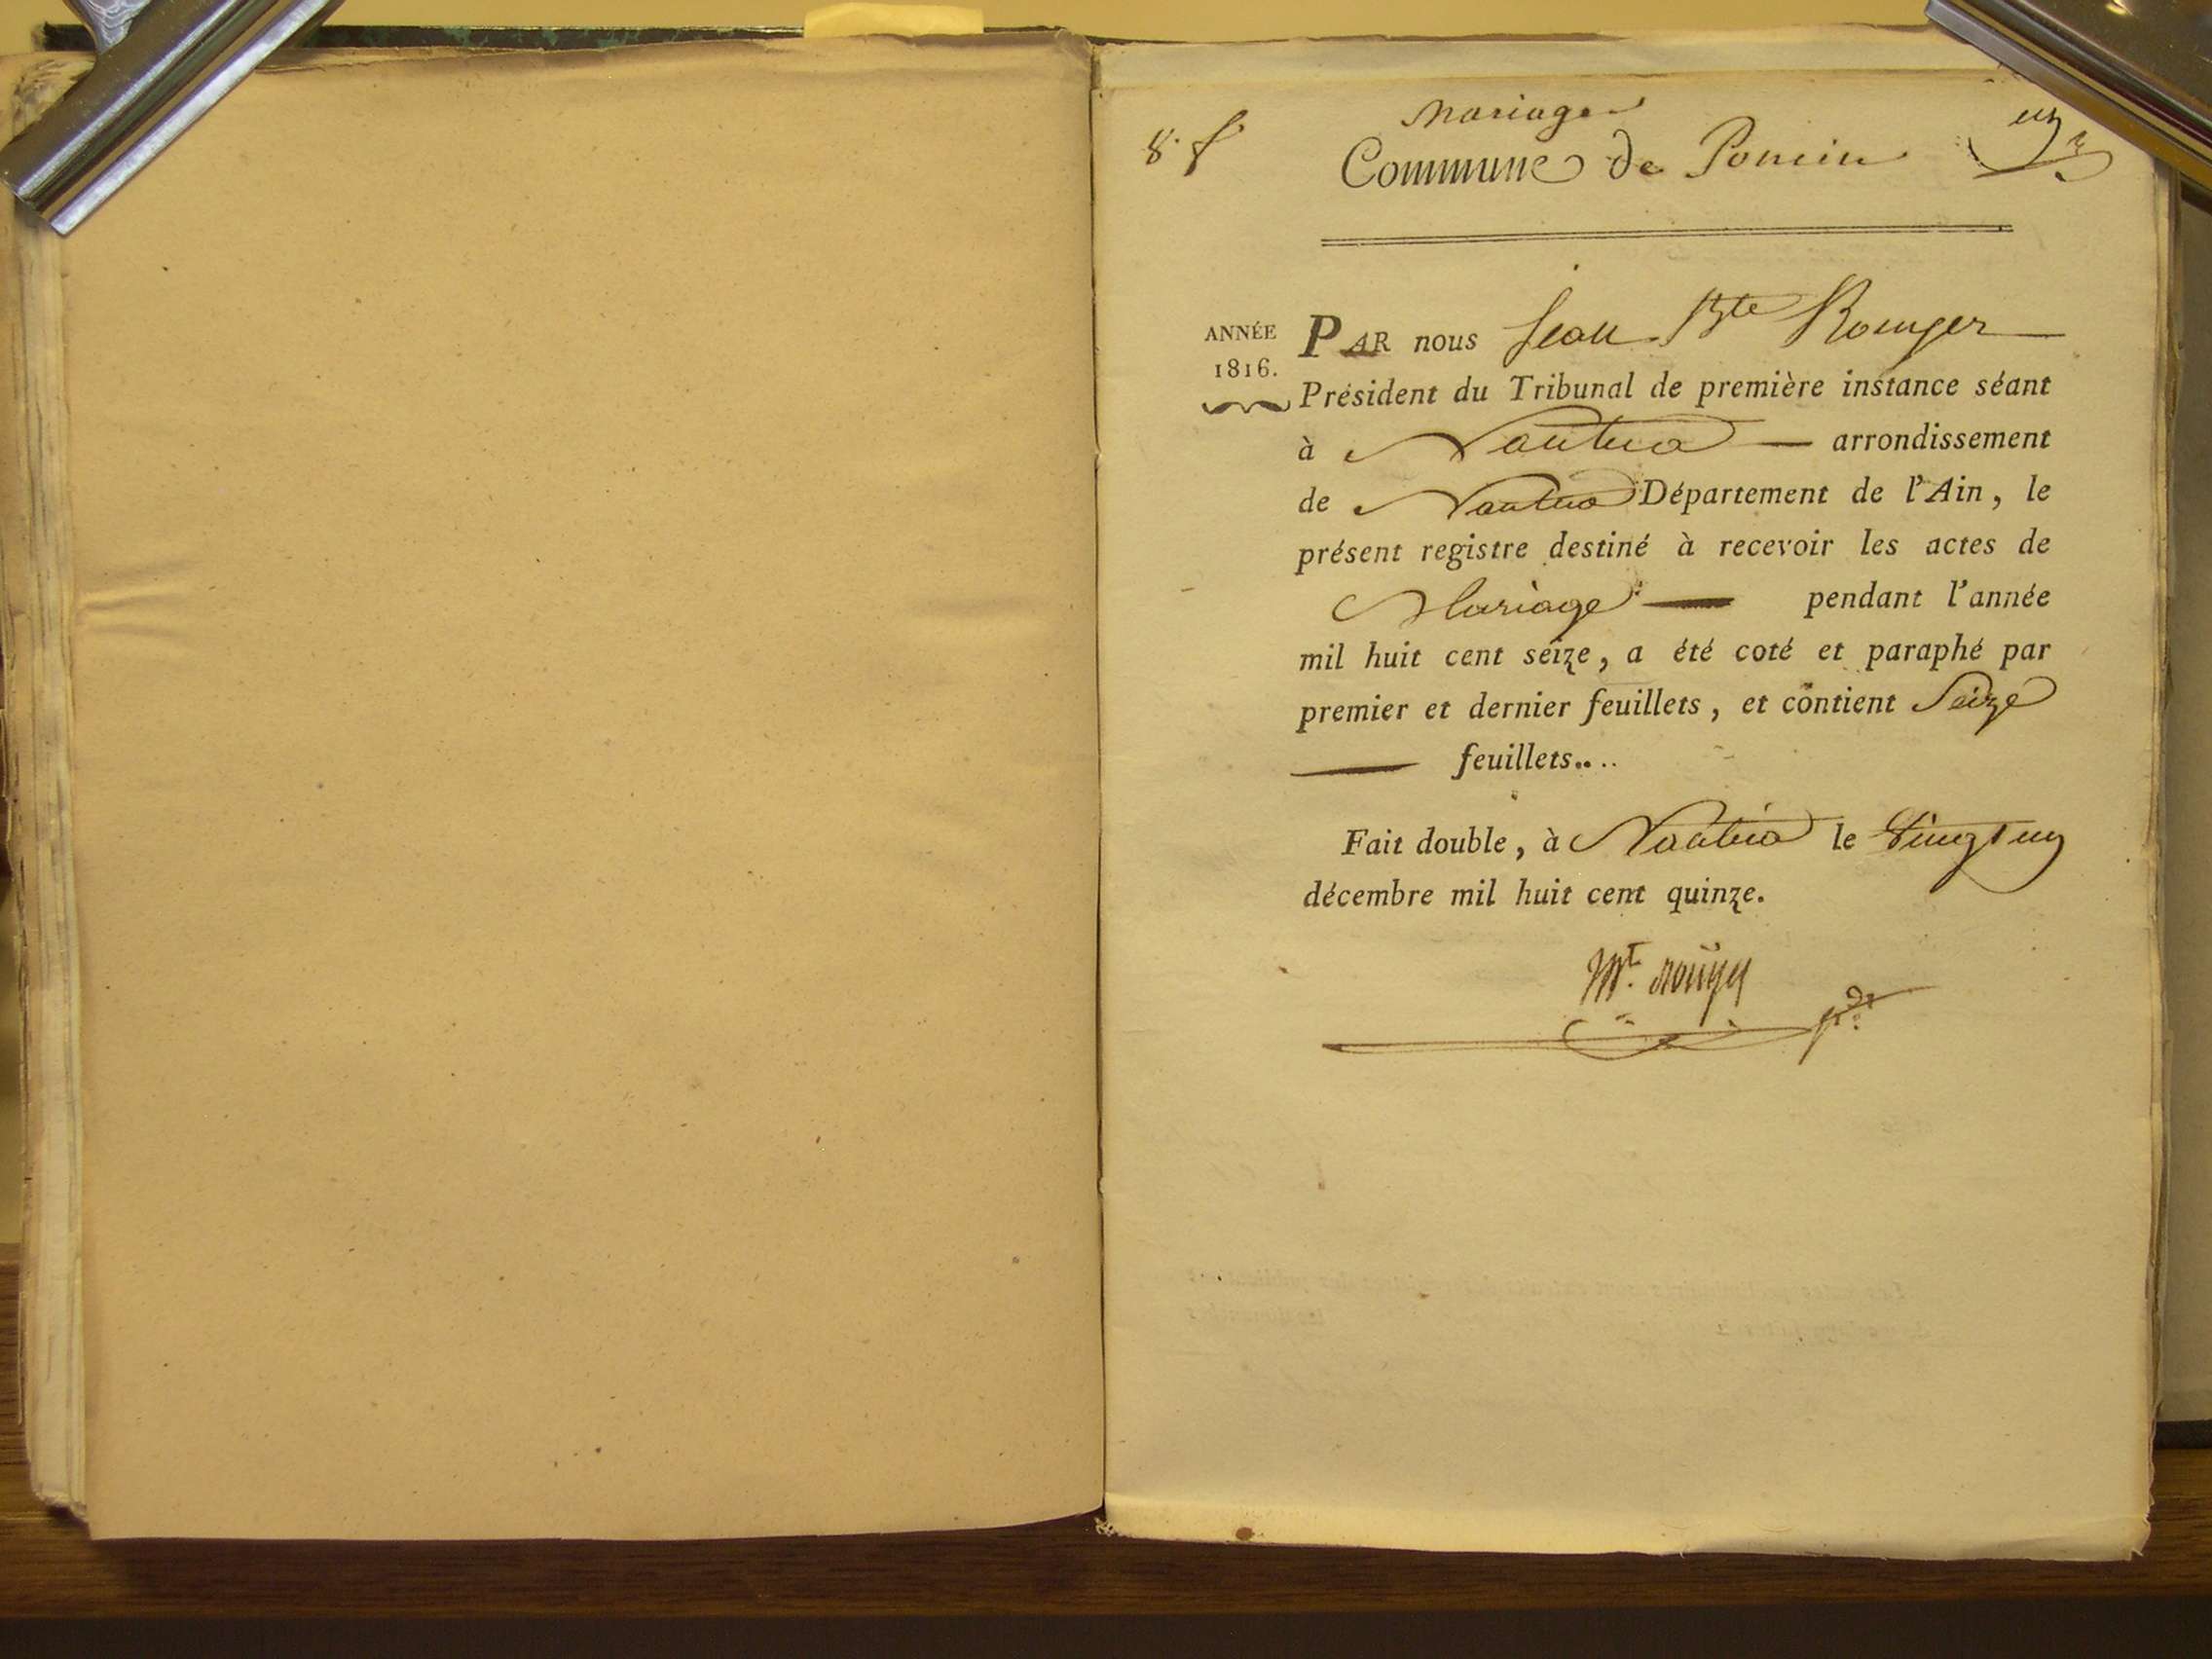 Mariages
8. f.
Commune de Poncin
un
ANNÉE
1816.
PAR nous Jean Bte Rouyer
Président du Tribunal de première instance séant
à Nantua — arrondissement
de Nantua Département de l'Ain, le
présent registre destiné à recevoir les actes de
Mariage — pendant l'année
mil huit cent seize, a été coté et paraphé par
premier et dernier feuillets, et contient Seize
— feuillets....
Fait double, à Nantua le Vingt un
décembre mil huit cent quinze.
rouyer
pdt